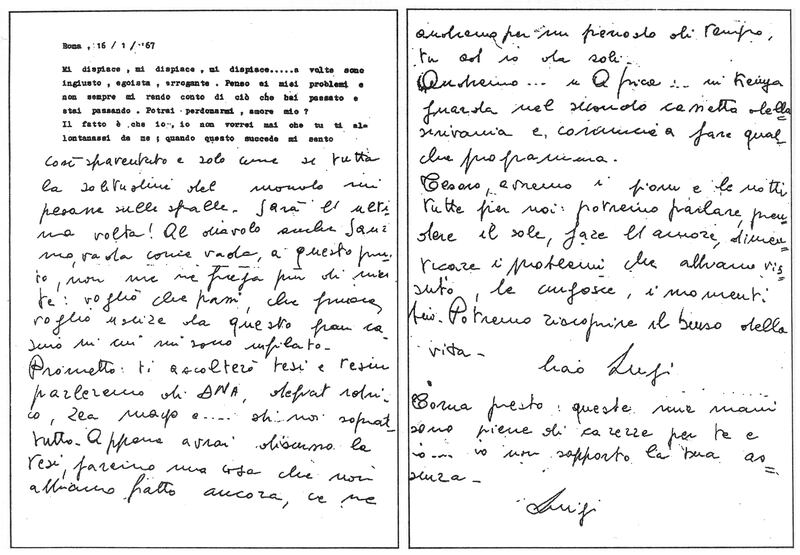 Roma , 16 / 1 / '67
Mi dispiace , mi dispiace , mi dispiace.....a volte sono
ingiusto , egoista , arrogante . Penso ai miei problemi e
non sempre mi rendo conto di ciò che hai passato e
stai passando . Potrai perdonarmi , amore mio ?
Il fatto è che io , io non vorrei mai che tu ti al=
lontanassi da me ; quando questo succede mi sento
così spaventato e solo come se tutta
la solitudine del mondo mi
pesasse sulle spalle. Sarà l'ulti
ma volta! Al diavolo anche
mo, vada come vada, a questo pun=
to, non me ne frega più di nien
te: voglio che passi, che
voglio uscire da questo gran ca=
sino in cui mi sono infilato.
Prometto: ti ascolterò tesi e tesine
parleremo di DNA,
co, Zea mays e.... di noi soprat=
tutto. Appena avrai discusso la
tesi, faremo una cosa che non
abbiamo fatto ancora, ce ne
andremo per un periodo di tempo,
tu ed io da soli.
Andremo... in Africa... in Kenya
guarda nel secondo cassetto della
scrivania e, comincia a fare qual
che programma.
Tesoro, avremo i giorni e le notti
tutte per noi: potremo parlare, pren=
dere il sole, fare l'amore, dimen=
ticare i problemi che abbiamo vis=
suto, le angosce, i momenti
bui. Potremo riscoprire il senso della
vita.
Ciao Luigi
Torna presto: queste mie mani
sono piene di carezze per te e
io.... io non sopporto la tua as=
senza.
Luigi